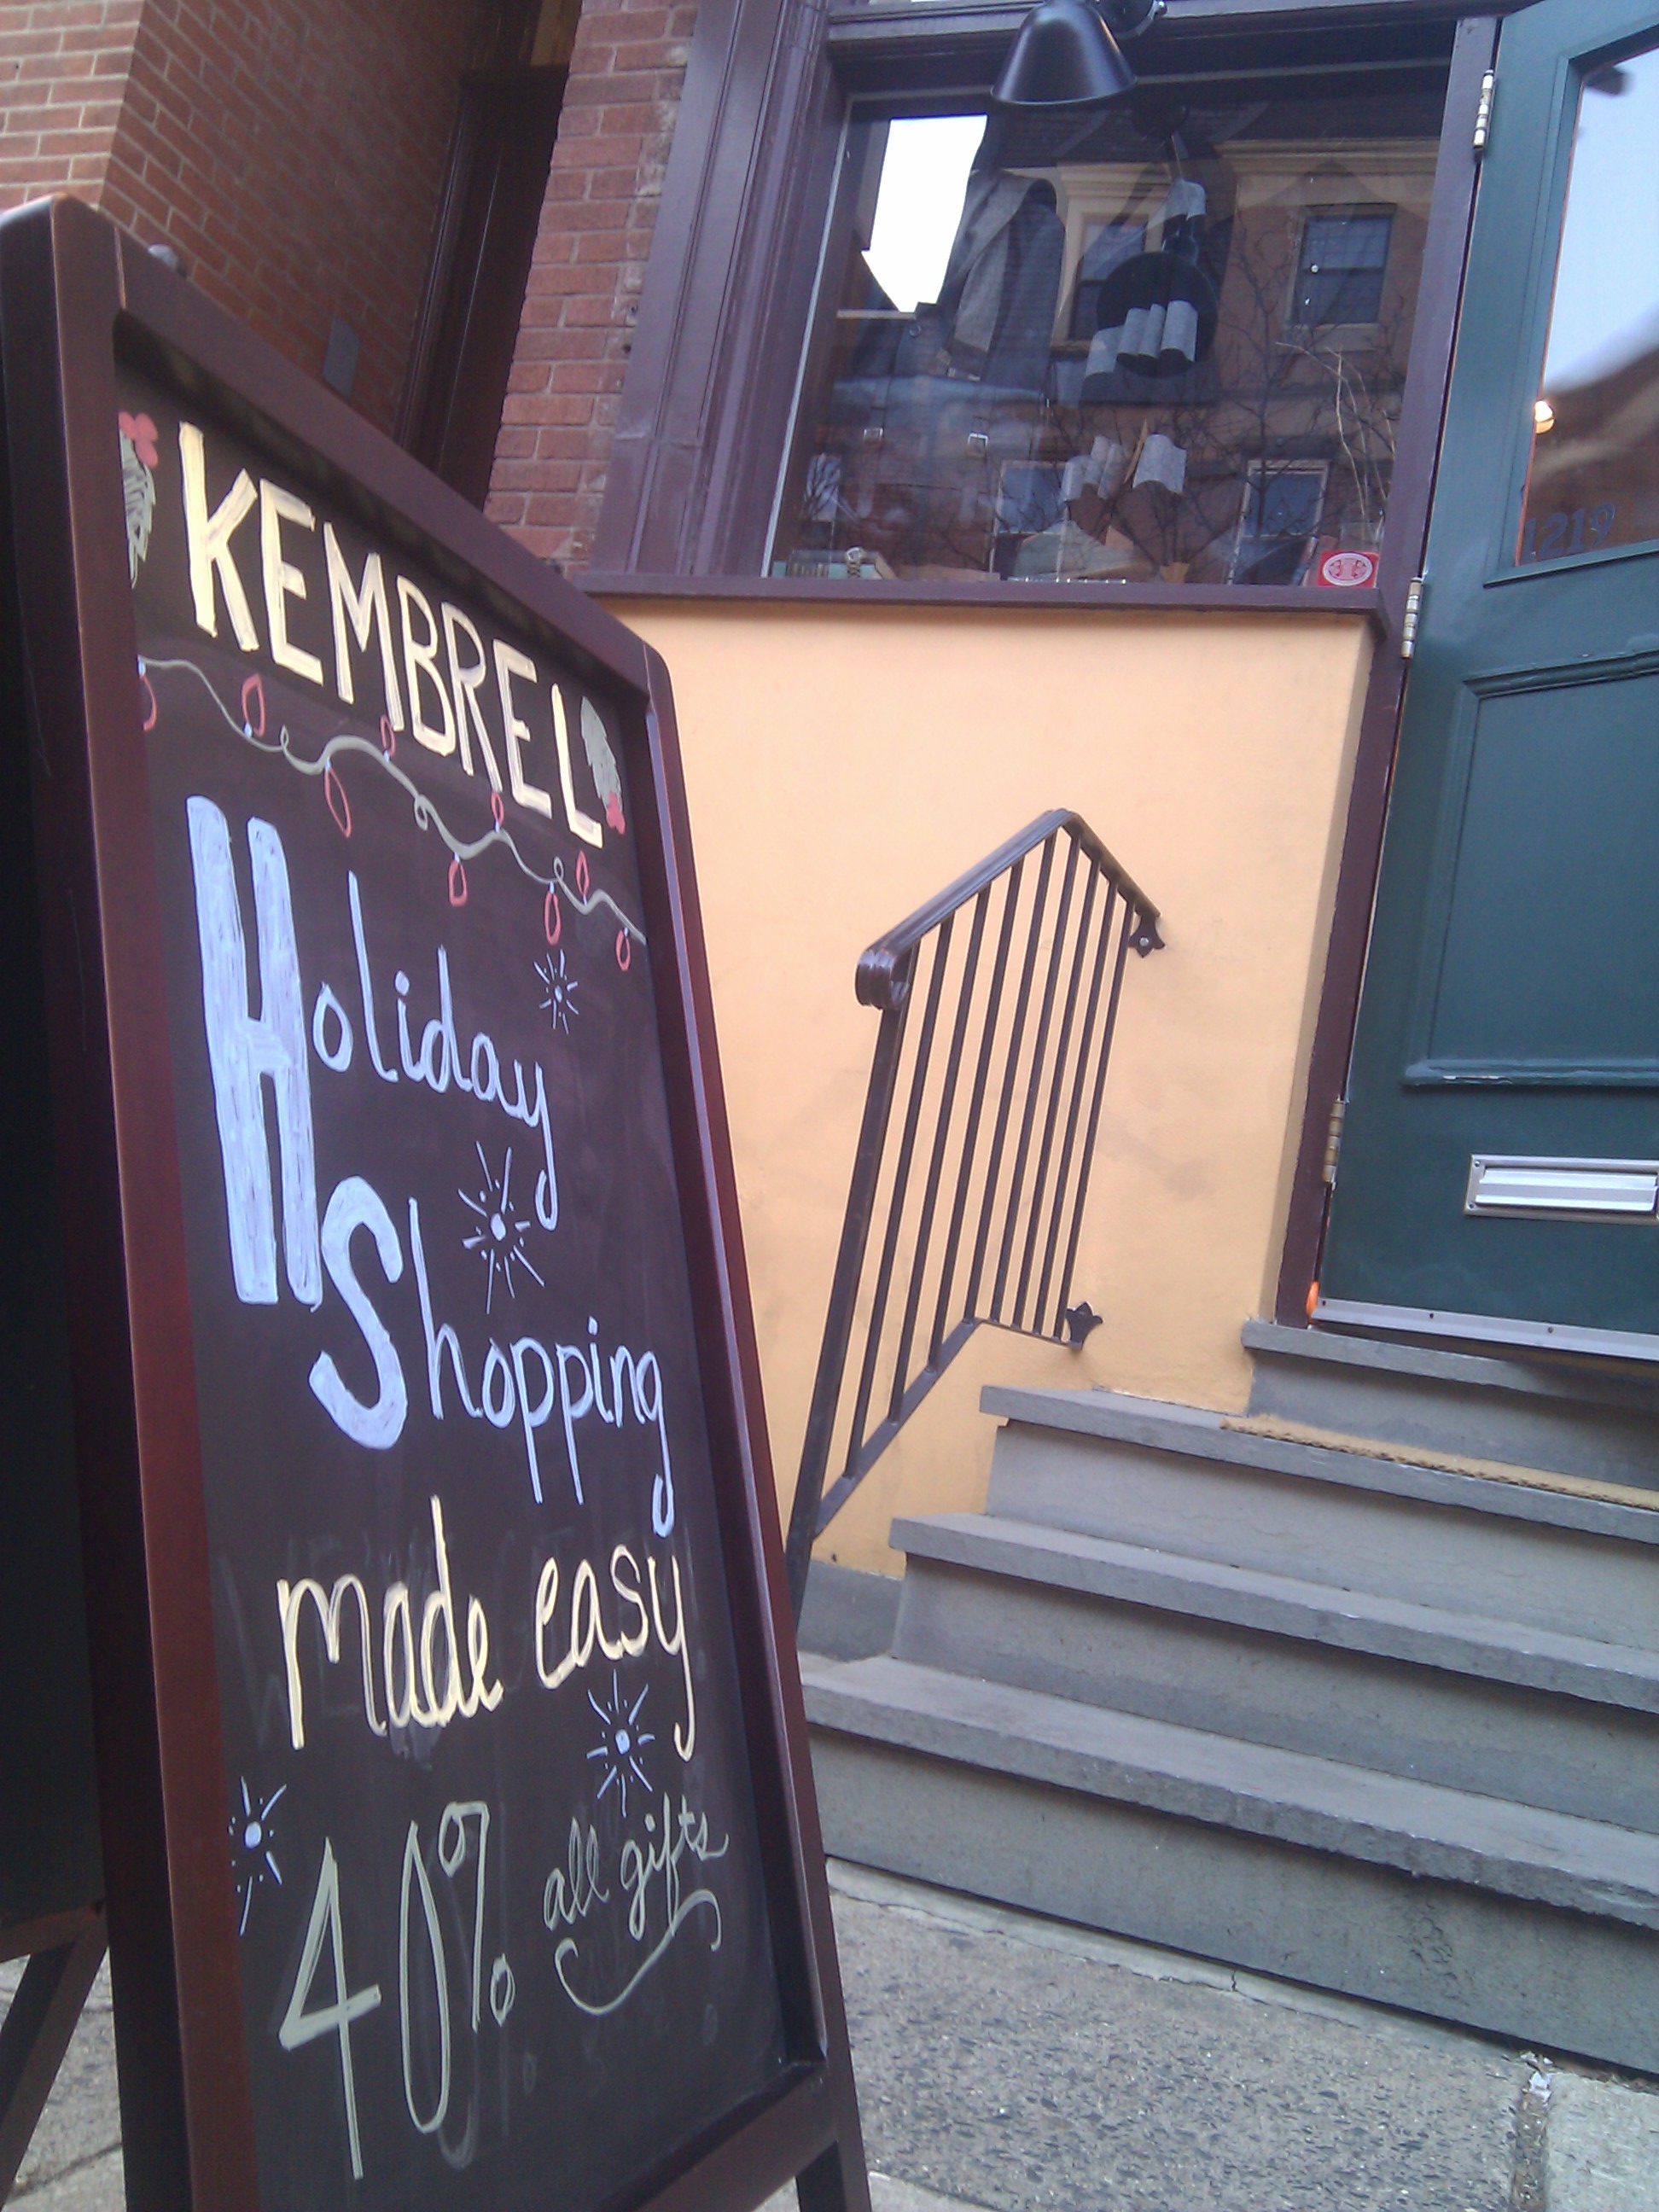 KEMBREL
Holiday
Shopping
made easy
40% all gifts
1219